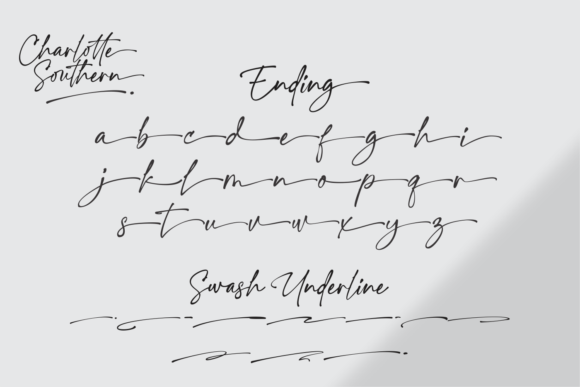 Charlotte
Southern
Ending
a b c d e f g h i
j k l m n o p q r
s t u v w x y z
Swash Underline